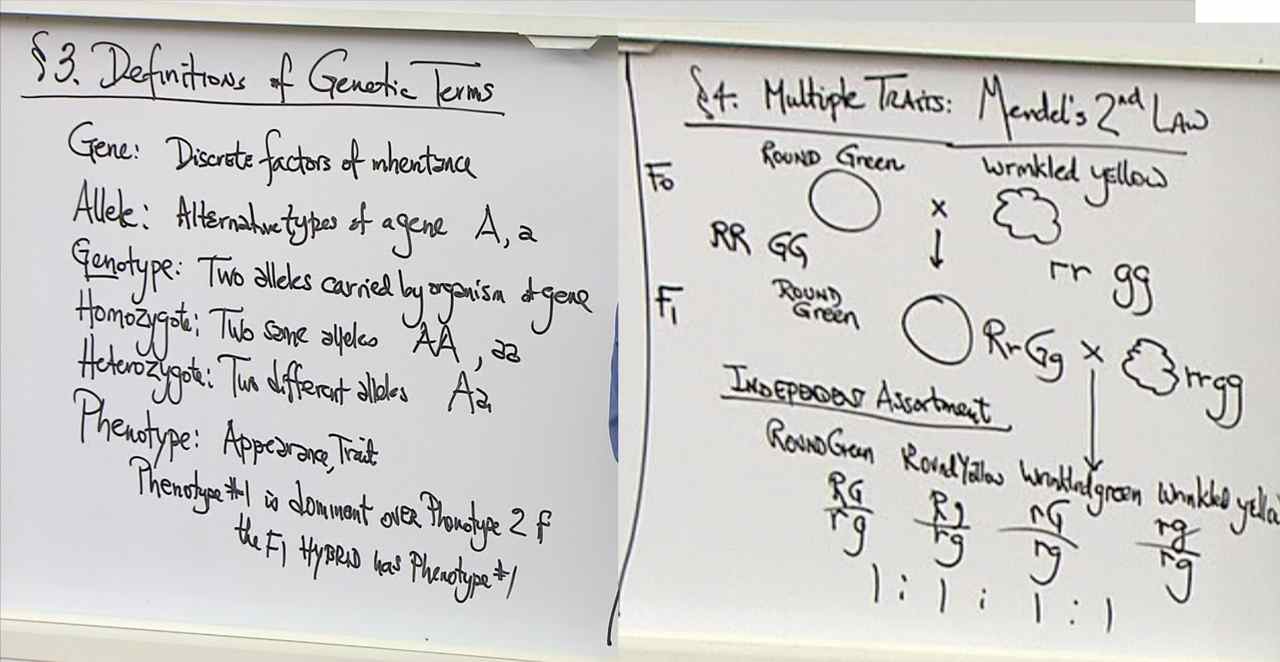 §3. Definitions of Genetic Terms
Gene: Discrete factors of inheritance
Allele: Alternative types of a gene A, a
Genotype: Two alleles carried by organism of gene
Homozygote: Two same alleles AA, aa
Heterozygote: Two different alleles Aa
Phenotype: Appearance, Trait
Phenotype #1 is dominent over Phenotype 2 if
the F1 HYBRID has Phenotype #1
§4. Multiple TRAITS: Mendel's 2nd LAW
ROUND Green wrinkled yellow
F0
x
RR GG
rr gg
F1
ROUND
Green
RrGg x rrgg
INDEPENDENT Assortment
ROUND Green Round Yellow Wrinkled green Wrinkled yellow
RG Rg rG rg
rg rg rg rg
1 : 1 : 1 : 1